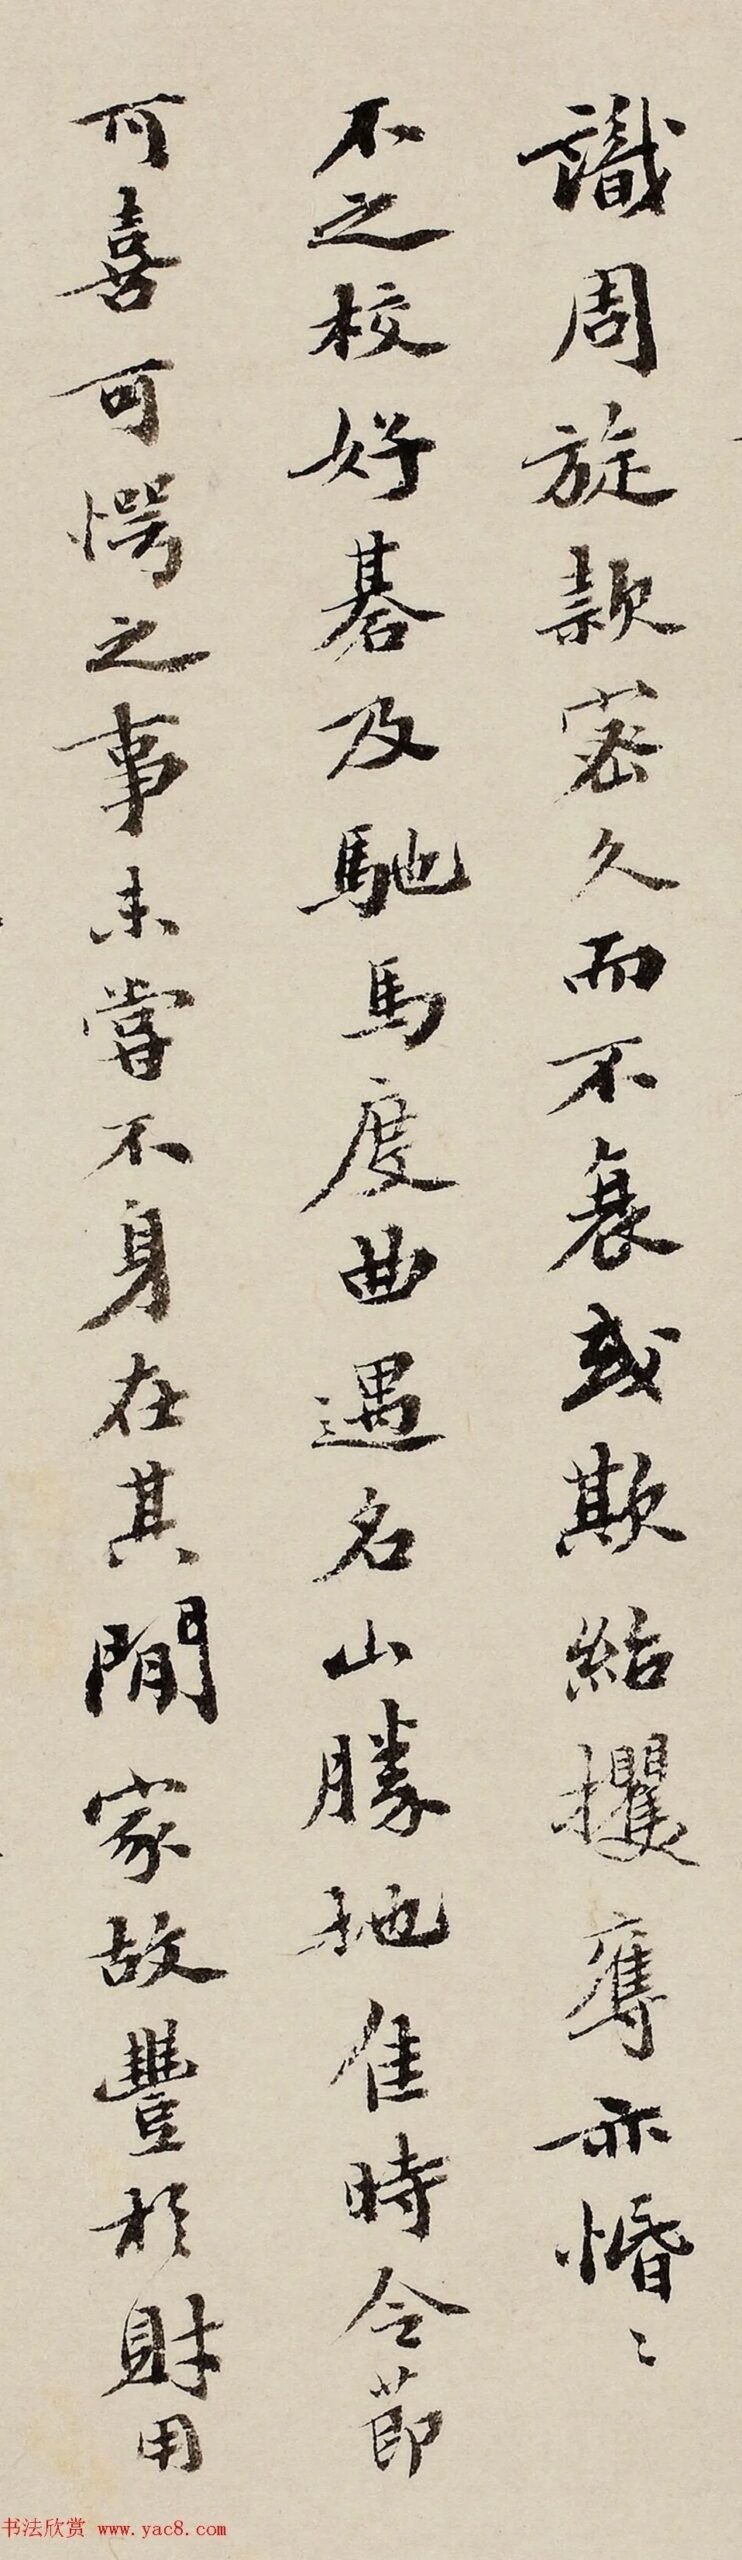 識周旋款密久而不衰或欺紿攫奪亦惛〻
不之校好棊及馳馬度曲遇名山勝地佳時令節
可喜可愕之事未嘗不身在其間家故豐於財用
书法欣赏 www.yac8.com